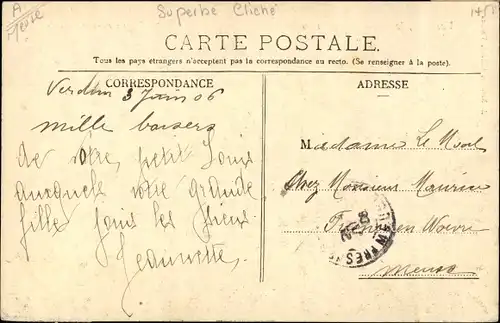 A
Meuse
Superbe Cliché
CARTE POSTALE.
Tous les pays étrangers n'acceptent pas la correspondance au recto. (Se renseigner à la poste).
CORRESPONDANCE
ADRESSE
Verdun 3 Juin 06
mille baisers
de votre petit Louis
auxquels votre grande
fille jons les siens.
Jeannette
Madame Le
Chez Monsieur Maurice
Fresnes en Woevre
Meuse
FRES